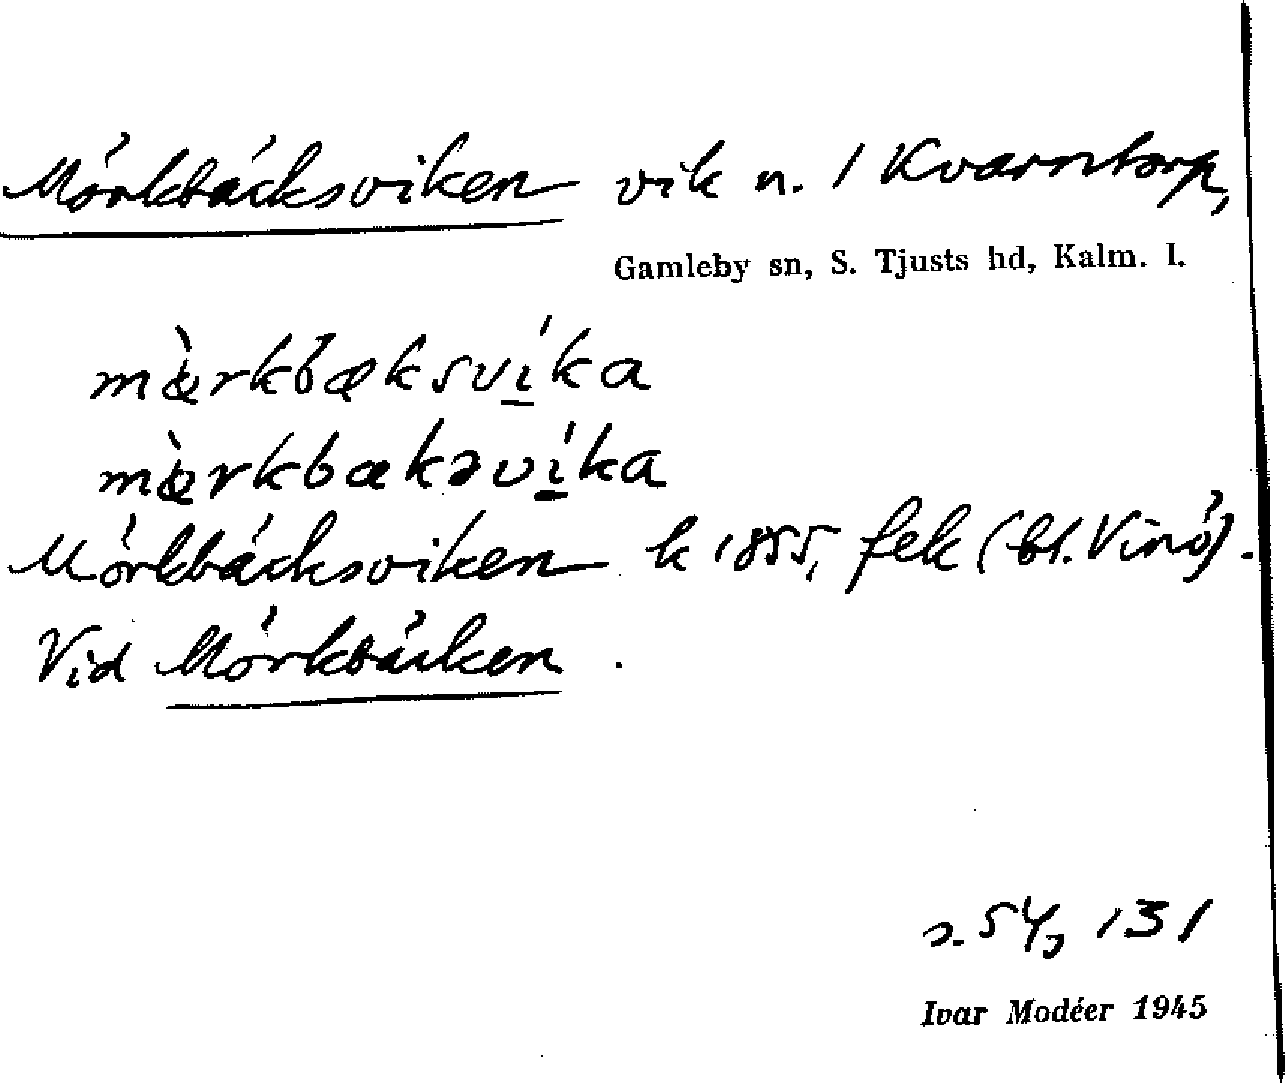 Mörkbäcksviken vik n. / Kvarntorp,
Gamleby sn, S. Tjusts hd, Kalm. l.
mœ̀rkbæksví̱ka
mœ̀rkbækəví̱ka
Mörkbäcksviken k 1855, fek (bl. Vinö).
Vid Mörkbäcken .
s. 54, 131
Ivar Modéer 1945